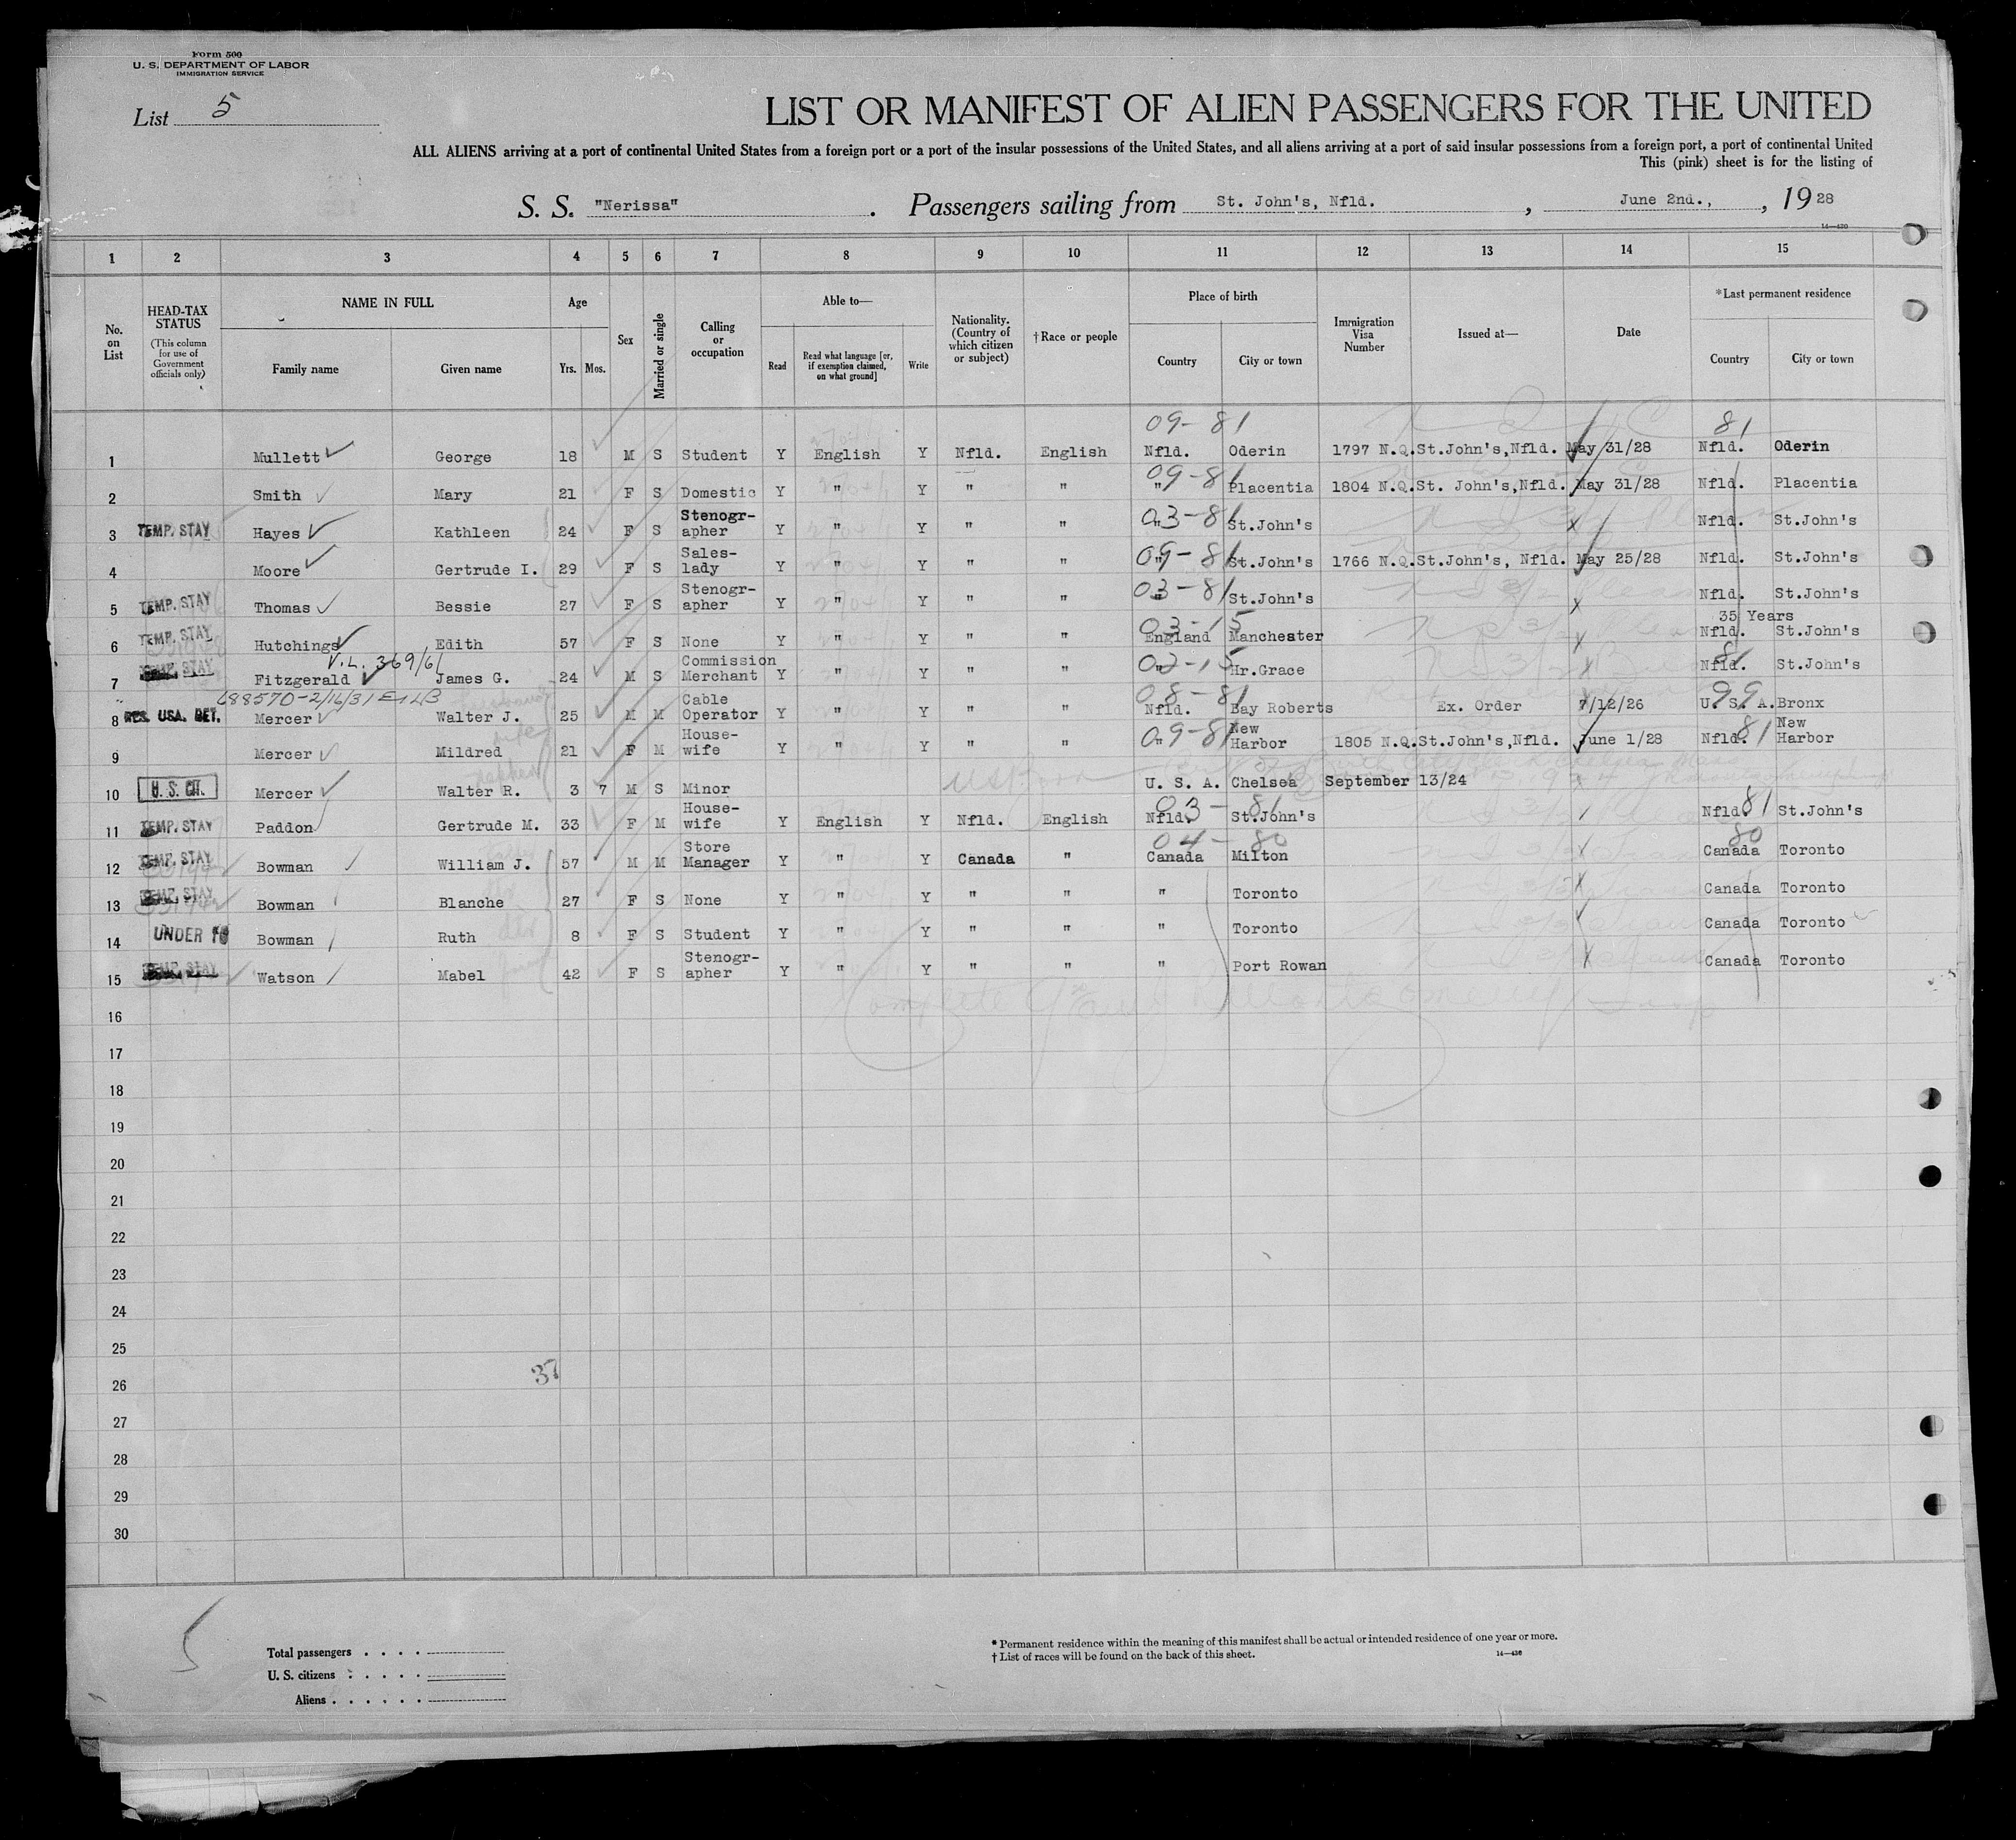 Form 500
U. S. DEPARTMENT OF LABOR
IMMIGRATION SERVICE
List 5
LIST OR MANIFEST OF ALIEN PASSENGERS FOR THE UNITED
ALL ALIENS arriving at a port of continental United States from a foreign port or a port of the insular possessions of the United States, and all aliens arriving at a port of said insular possessions from a foreign port, a port of continental United
This (pink) sheet is for the listing of
S. S. "Nerissa". Passengers sailing from St. John's, Nfld., June 2nd., , 1928
14—430
1 2 3 4 5 6 7 8 9 10 11 12 13 14 15
No. on List
HEAD-TAX STATUS
(This column for use of Government officials only)
NAME IN FULL
Family name Given name
Age
Yrs. Mos.
Sex
Married or single
Calling or occupation
Able to—
Read
Read what language [or, if exemption claimed, on what ground]
Write
Nationality. (Country of which citizen or subject)
†Race or people
Place of birth
Country City or town
Immigration Visa Number
Issued at—
Date
*Last permanent residence
Country City or town
09-81 81
1 Mullett George 18 M S Student Y English Y Nfld. English Nfld. Oderin 1797 N.Q. St.John's,Nfld. May 31/28 Nfld. Oderin
09-81
2 Smith Mary 21 F S Domestic Y " Y " " " Placentia 1804 N.Q. St. John's,Nfld. May 31/28 Nfld. Placentia
03-81
3 TEMP. STAY Hayes Kathleen 24 F S Stenogr-apher Y " Y " " " St.John's Nfld. St.John's
09-81
4 Moore Gertrude I. 29 F S Sales-lady Y " Y " " " St.John's 1766 N.Q. St.John's, Nfld. May 25/28 Nfld. St.John's
03-81
5 TEMP. STAY Thomas Bessie 27 F S Stenogr-apher Y " Y " " " St.John's Nfld. St.John's
03-15 35 Years
6 TEMP. STAY Hutchings Edith 57 F S None Y " Y " " England Manchester Nfld. St.John's
V.L. 369/61
02-15 81
7 TEMP. STAY Fitzgerald James G. 24 M S Commission Merchant Y " Y " " " Hr.Grace Nfld. St.John's
688570-2/16/31
08-81 99
8 RES. USA. RET. Mercer Walter J. 25 M M Cable Operator Y " Y " " Nfld. Bay Roberts Ex. Order 7/12/26 U. S. A. Bronx
09-81 81
9 Mercer Mildred 21 F M House-wife Y " Y " " " New Harbor 1805 N.Q. St.John's,Nfld. June 1/28 Nfld. New Harbor
10 U. S. CIT. Mercer Walter R. 3 7 M S Minor U. S. A. Chelsea September 13/24
03-81 81
11 TEMP. STAY Paddon Gertrude M. 33 F M House-wife Y English Y Nfld. English Nfld. St.John's Nfld. St.John's
04-80 80
12 TEMP. STAY Bowman William J. 57 M M Store Manager Y " Y Canada " Canada Milton Canada Toronto
13 TEMP. STAY Bowman Blanche 27 F S None Y " Y " " " Toronto Canada Toronto
14 UNDER 16 Bowman Ruth 8 F S Student Y " Y " " " Toronto Canada Toronto
15 TEMP. STAY Watson Mabel 42 F S Stenogr-apher Y " Y " " " Port Rowan Canada Toronto
16
17
18
19
20
21
22
23
24
25
26
37
27
28
29
30
5
Total passengers
U. S. citizens
Aliens
* Permanent residence within the meaning of this manifest shall be actual or intended residence of one year or more.
† List of races will be found on the back of this sheet.
14—430